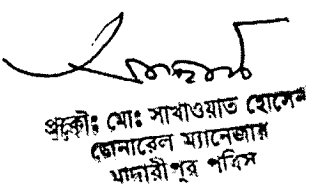 প্রকৌঃ মোঃ সাখাওয়াত হোসেন
জেনারেল ম্যানেজার
মাদারীপুর পবিস